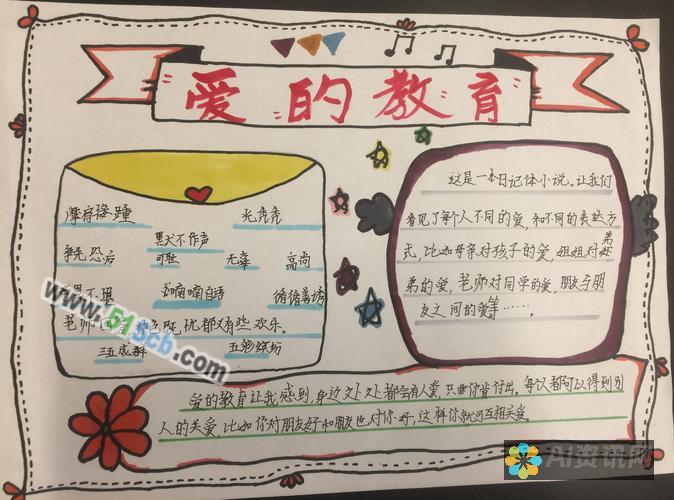 爱的教育
摩肩接踵 光秃秃
默不作声
争先恐后 可耻 无辜 高尚
不理 喃喃自语 循循善诱
www.51scb.com
老师 色既忧郁又有些欢乐。
三五成群 五彩缤纷
这是一本日记体小说。让我们
看见了每个人不同的爱,和不同的表达方
式,比如母亲对孩子的爱,姐姐对弟
弟的爱,老师对同学的爱,朋友与朋
友之间的爱等……。
爱的教育让我感到,身边处处都会有人爱,只要你肯付出。每人都可以得到别
人的关爱,比如你对朋友好和朋友也对你好,这样你就可互相关爱。
AI资讯网